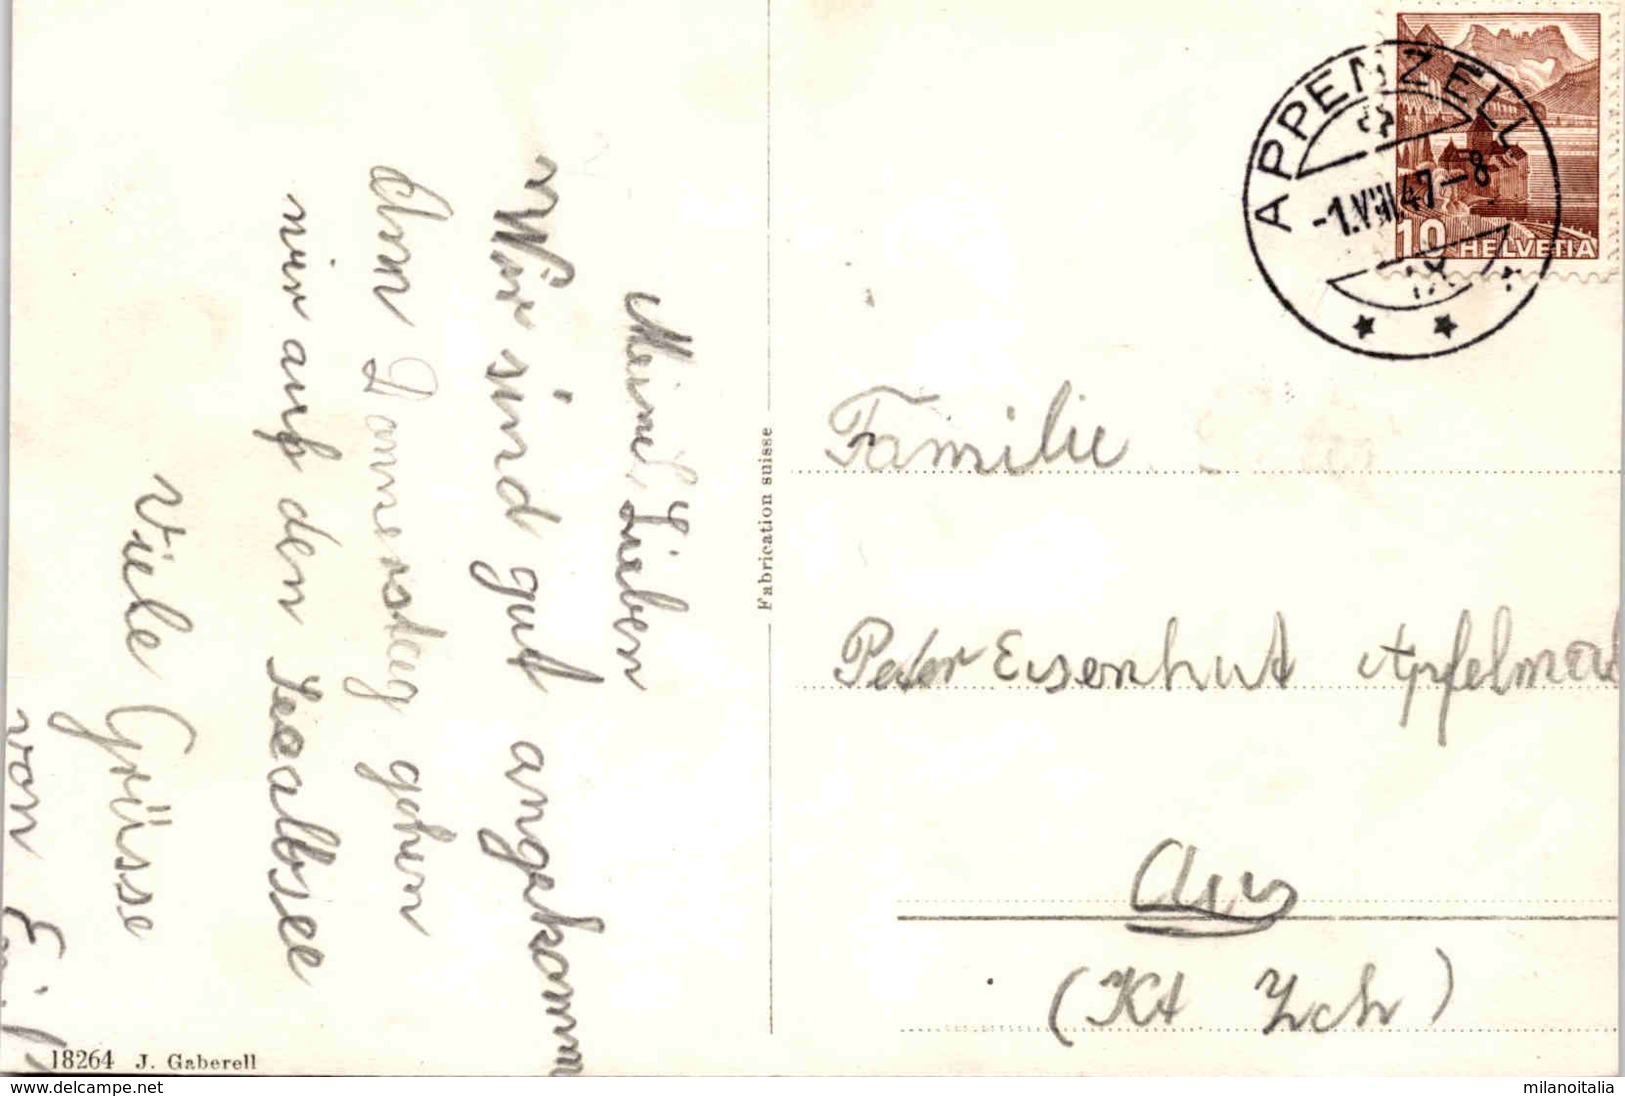 Meine Lieben
Wir sind gut angekomm
Am Donnerstag gehen
wir auf den Seealbsee
Viele Grüsse
von Emil
18264 J. Gaberell
Fabrication suisse
APPENZELL
-1.VIII.47-8
10 HELVETIA
Familie
Peter Eisenhut
Au
(Kt Zch)
delcampe.net
milanoitalia